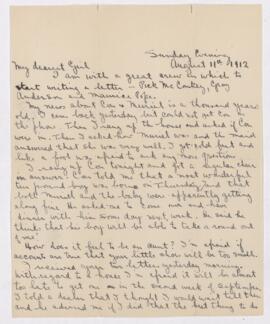 Sunday Evening
August 11th 1912
My dearest Girl
I am with a great crew in which to
start writing a letter - Dick McCarkey, Gray
Anderson and Maurice Pope.
My news about Cos & Muriel is a thousand years
old. I came back yesterday but could not get Cos on
the phone. Then I rang up the house and asked if Cos
was in. Then I asked how Muriel was and the maid
answered that she was very well. I got cold feet and
like a fool was afraid to ask any more questions.
I rang up Cos tonight and got a regular cheer
in answer. Cos told me that a most wonderful
ten pound boy was born on Thursday and that
both Muriel and the baby were apparently getting
along fine. He asked me to come out and have
dinner with him some day next week. He said he
thinks that his boy will be able to take a round out
of me.
How does it feel to be an aunt? I'm afraid if
accounts are true that your little shoes will be too small.
I received your two letters yesterday morning.
With regard to a house I'm afraid it will be almost
too late to get one as in the second week of September.
I told a dealer that I thought I would wait till then
and he advised me if I did that the best thing to do